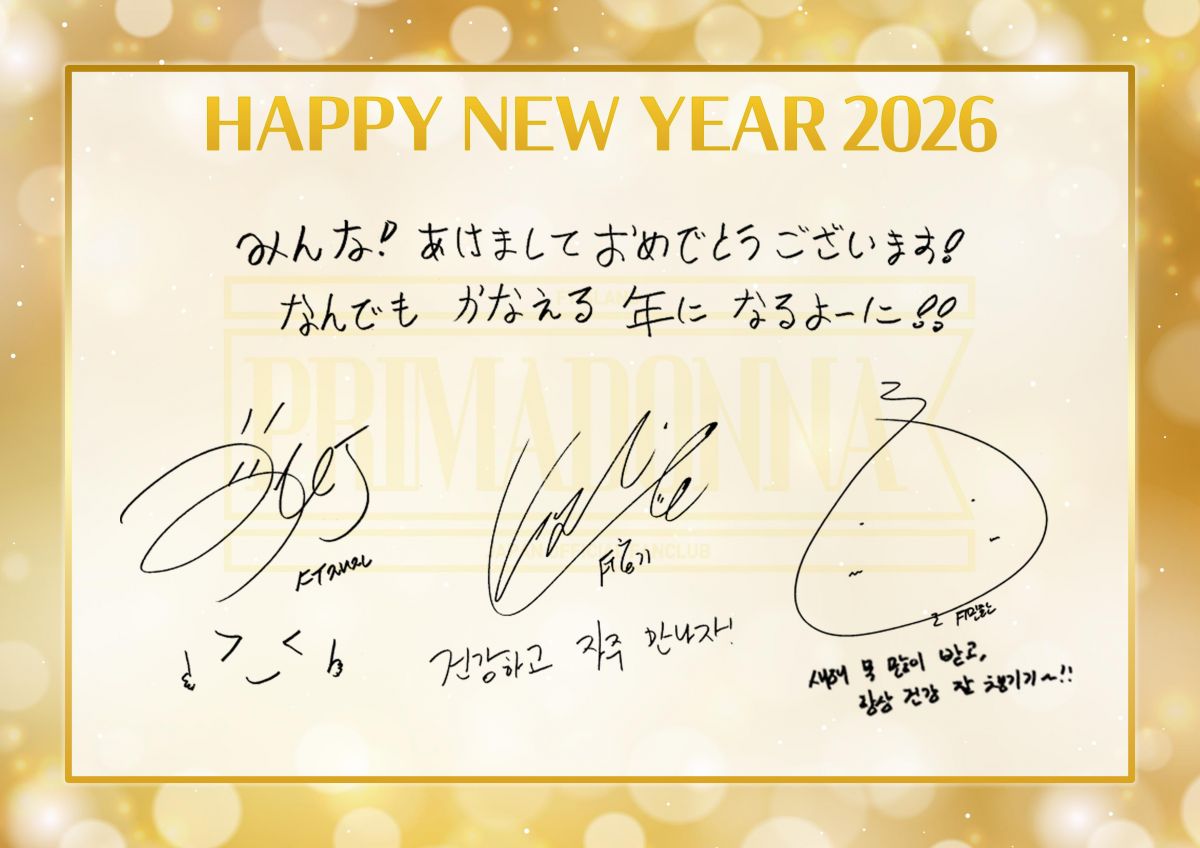 HAPPY NEW YEAR 2026
みんな! あけまして おめでとうございます!
なんでも かなえる 年に なるよーに!!
PRIMADONNA
JAPAN OFFICIAL FANCLUB
FT재진
FT홍기
FT민환
건강하고 자주 만나자!
새해 복 많이 받고,
항상 건강 잘 챙기기~!!